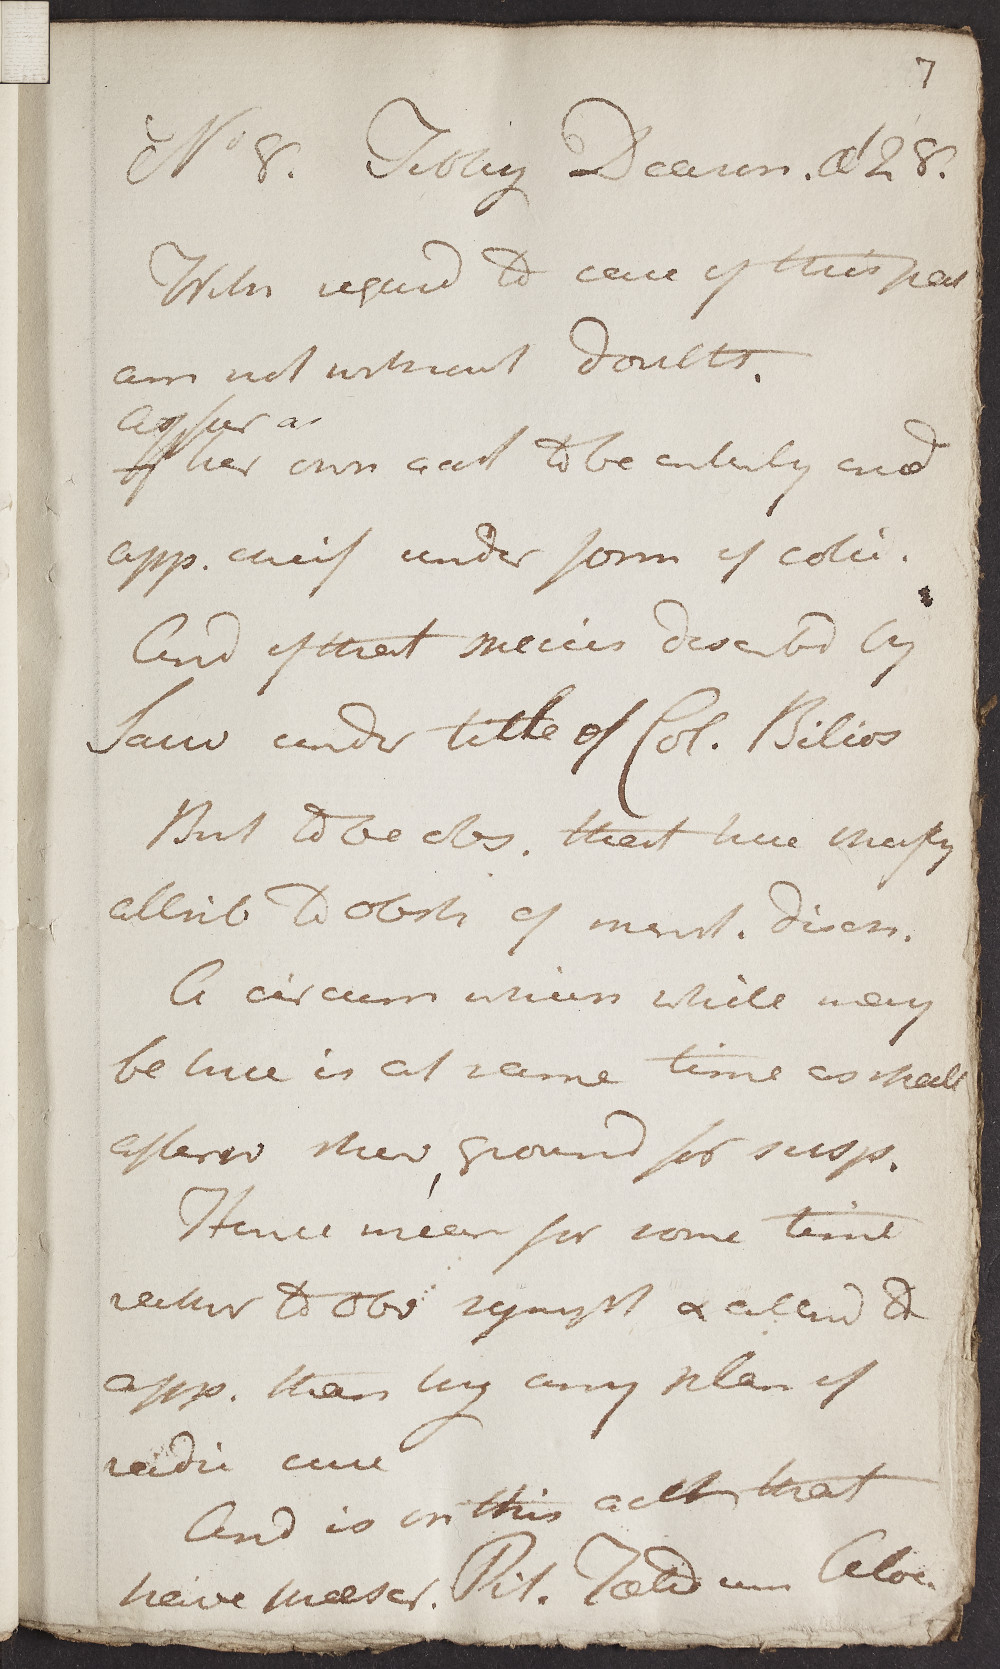 7
No 8. Tibby Deason. æt 28.
With regard to case of this pat
am not without doubts.
appear as
of her own acct to be entirely and
app. chief under form of colic.
And of that species describd by
Sauv under title of Col. Bilios
But to be obs. that here chiefly
attrib to obstr of menst. disch.
A circum which while may
be true is at same time as shall
afterw shew, ground for susp.
Hence mean for some time
rather to obv sympt & attend to
app. than try any plan of
radic cure
And is on this acct that
have prescr. Pil. Foetid cum Aloe.